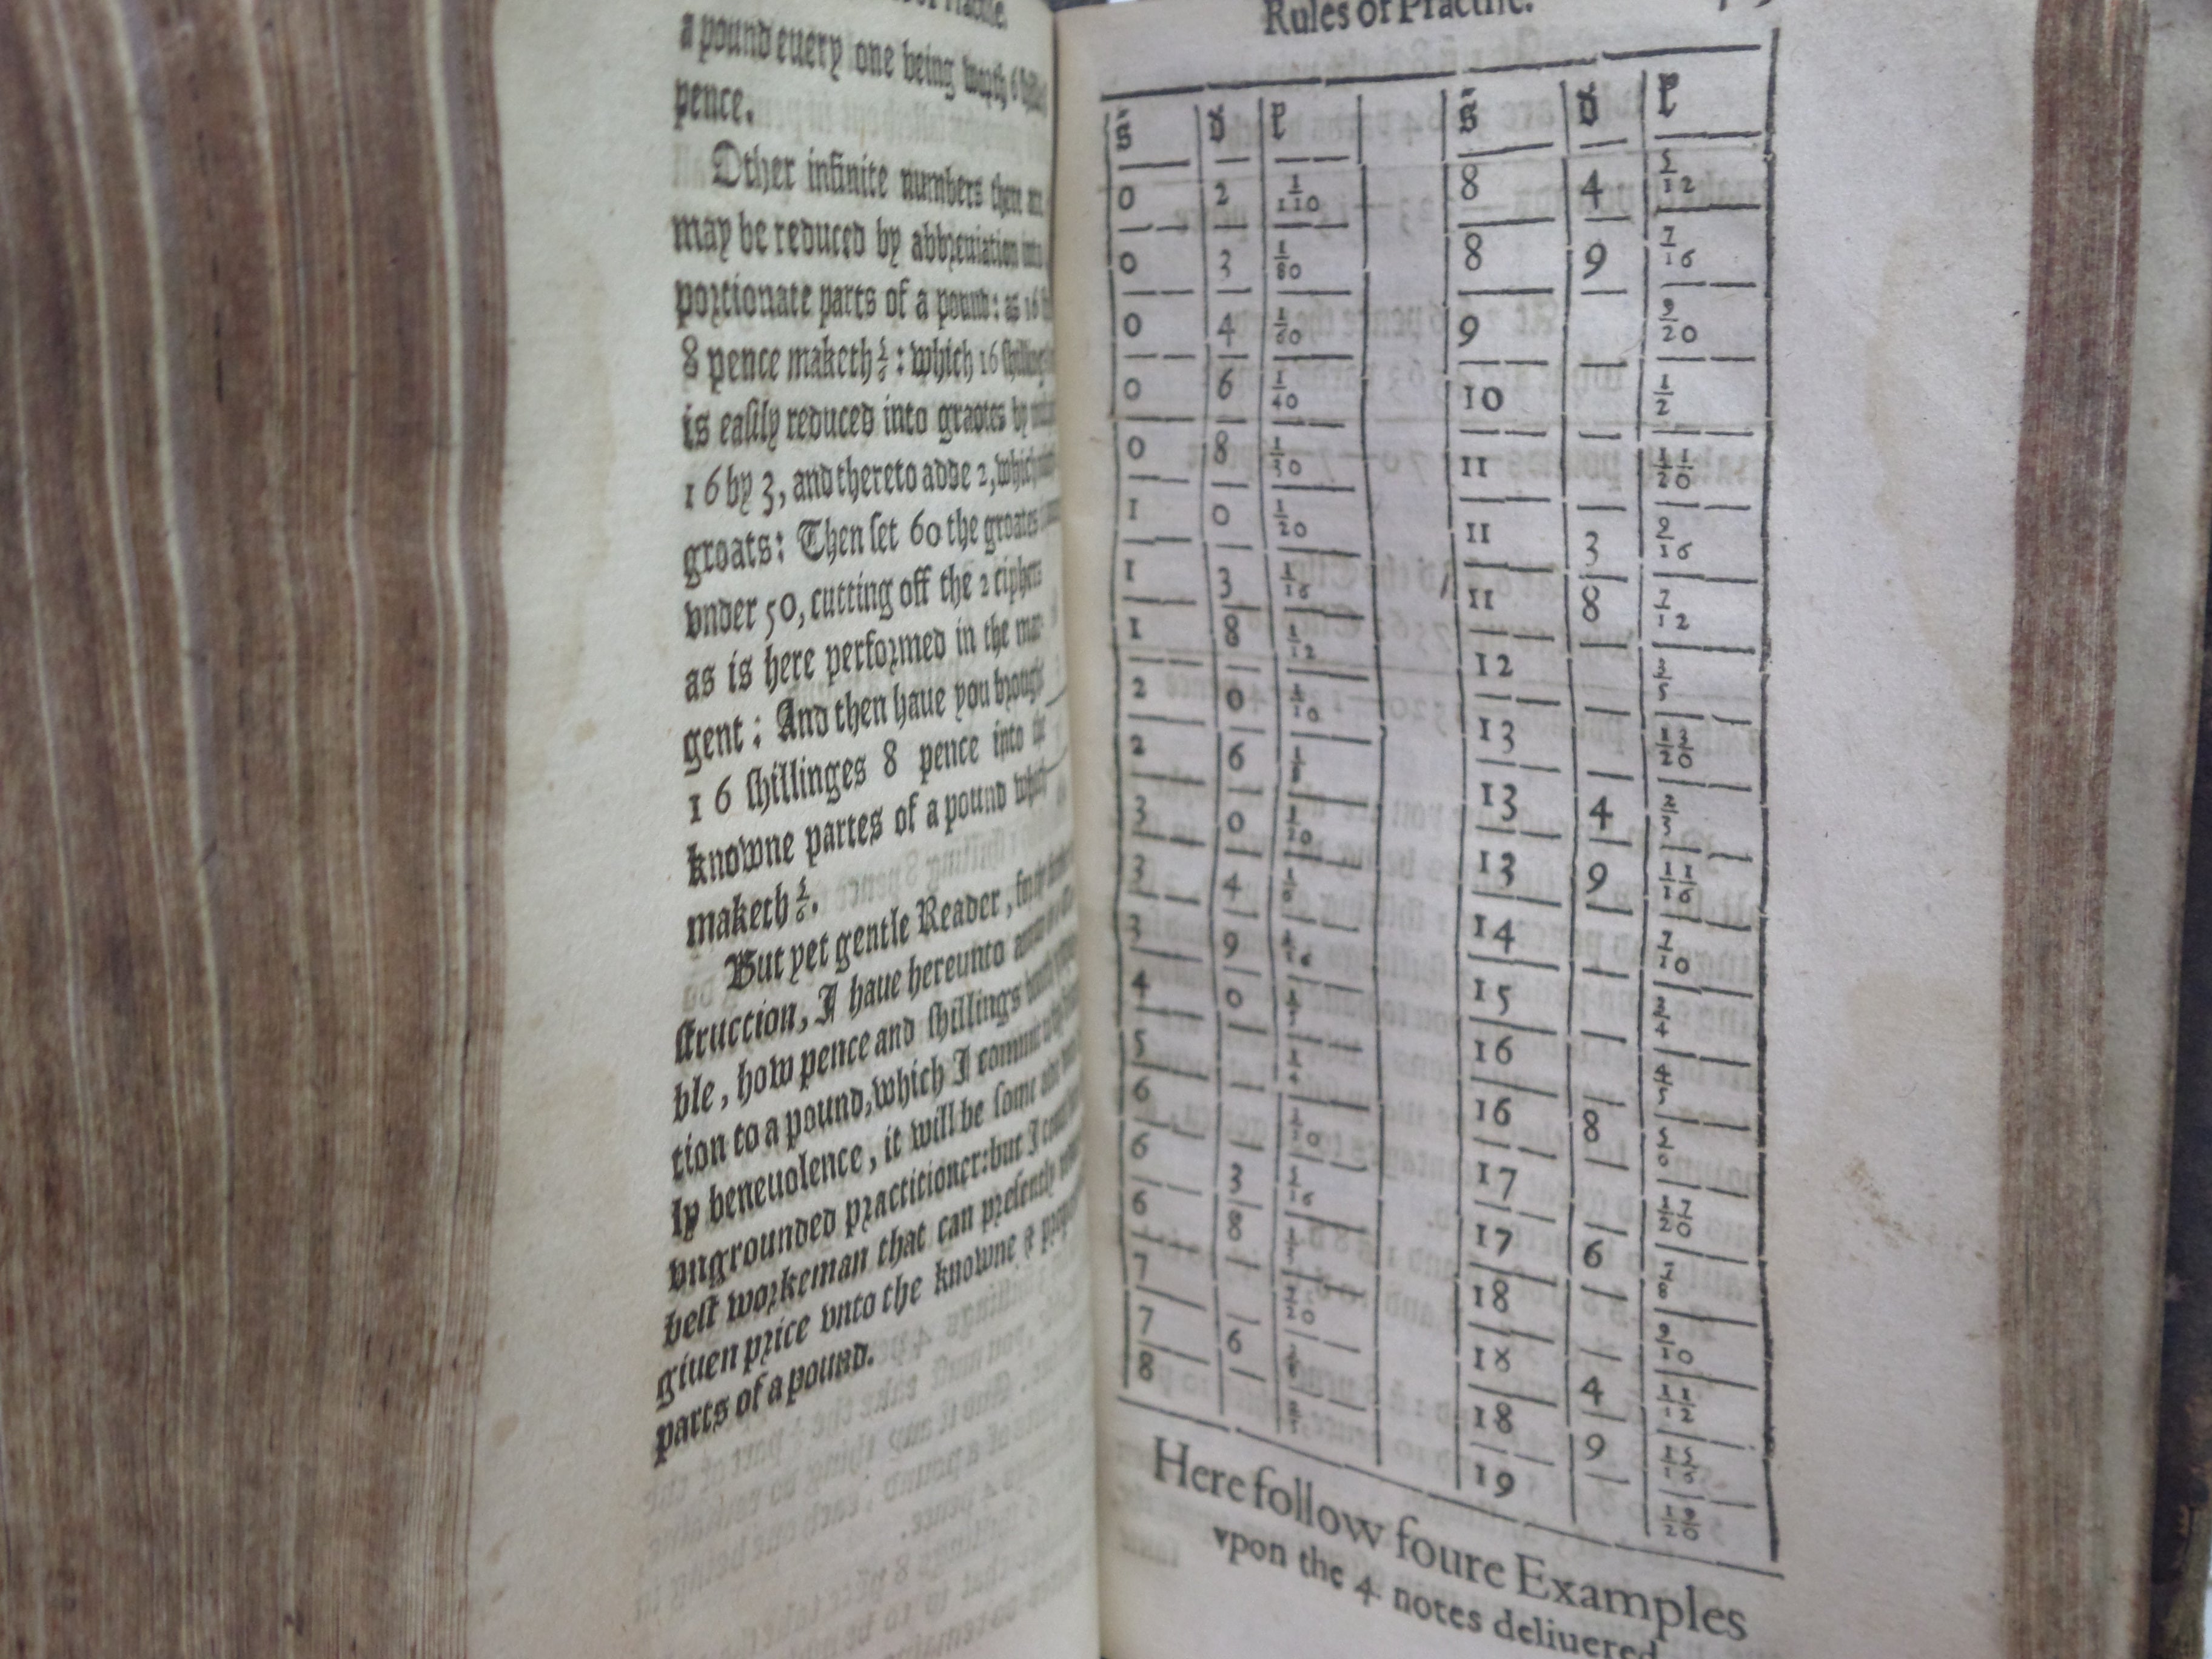 a pound euery one being worth 6
pence.
Other infinite numbers then
may be reduced by abbreuiation into
portionate parts of a pound: as 16
8 pence maketh 5/6: which 16
is easily reduced into groates by
16 by 3, and thereto adde 2, which
groats: Then set 60 the groates
vnder 50, cutting off the 2 ciphers
as is here performed in the mar-
gent: And then haue you brought
16 shillinges 8 pence into
knowne partes of a pound which
maketh 5/6.
But yet gentle Reader,
struction, I haue hereunto
ble, how pence and shillings
tion to a pound, which I
ly beneuolence, it will be some
vngrounded practitioner: but I
best workeman that can presently
giuen price vnto the knowne
parts of a pound.
Rules of Practise.
s d l s d l
0 2 1/110 8 4 5/12
0 3 1/80 8 9 7/16
0 4 1/60 9 9/20
0 6 1/40 10 1/2
0 8 1/30 11 11/20
1 0 1/20 11 3 9/16
1 3 1/16 11 8 7/12
1 8 1/12 12 3/5
2 0 1/10 13 13/20
2 6 1/8 13 4 2/3
3 0 13 9 11/16
3 4 1/6 14 7/10
3 9 15 3/4
4 0 1/5 16 4/5
5 1/4 16 8 5/6
6 17 17/20
6 3 5/16 17 6 7/8
6 8 18 9/10
7 7/20 18 4 11/12
7 6 18 9 15/16
8 19 19/20
Here follow foure Examples
vpon the 4 notes deliuered